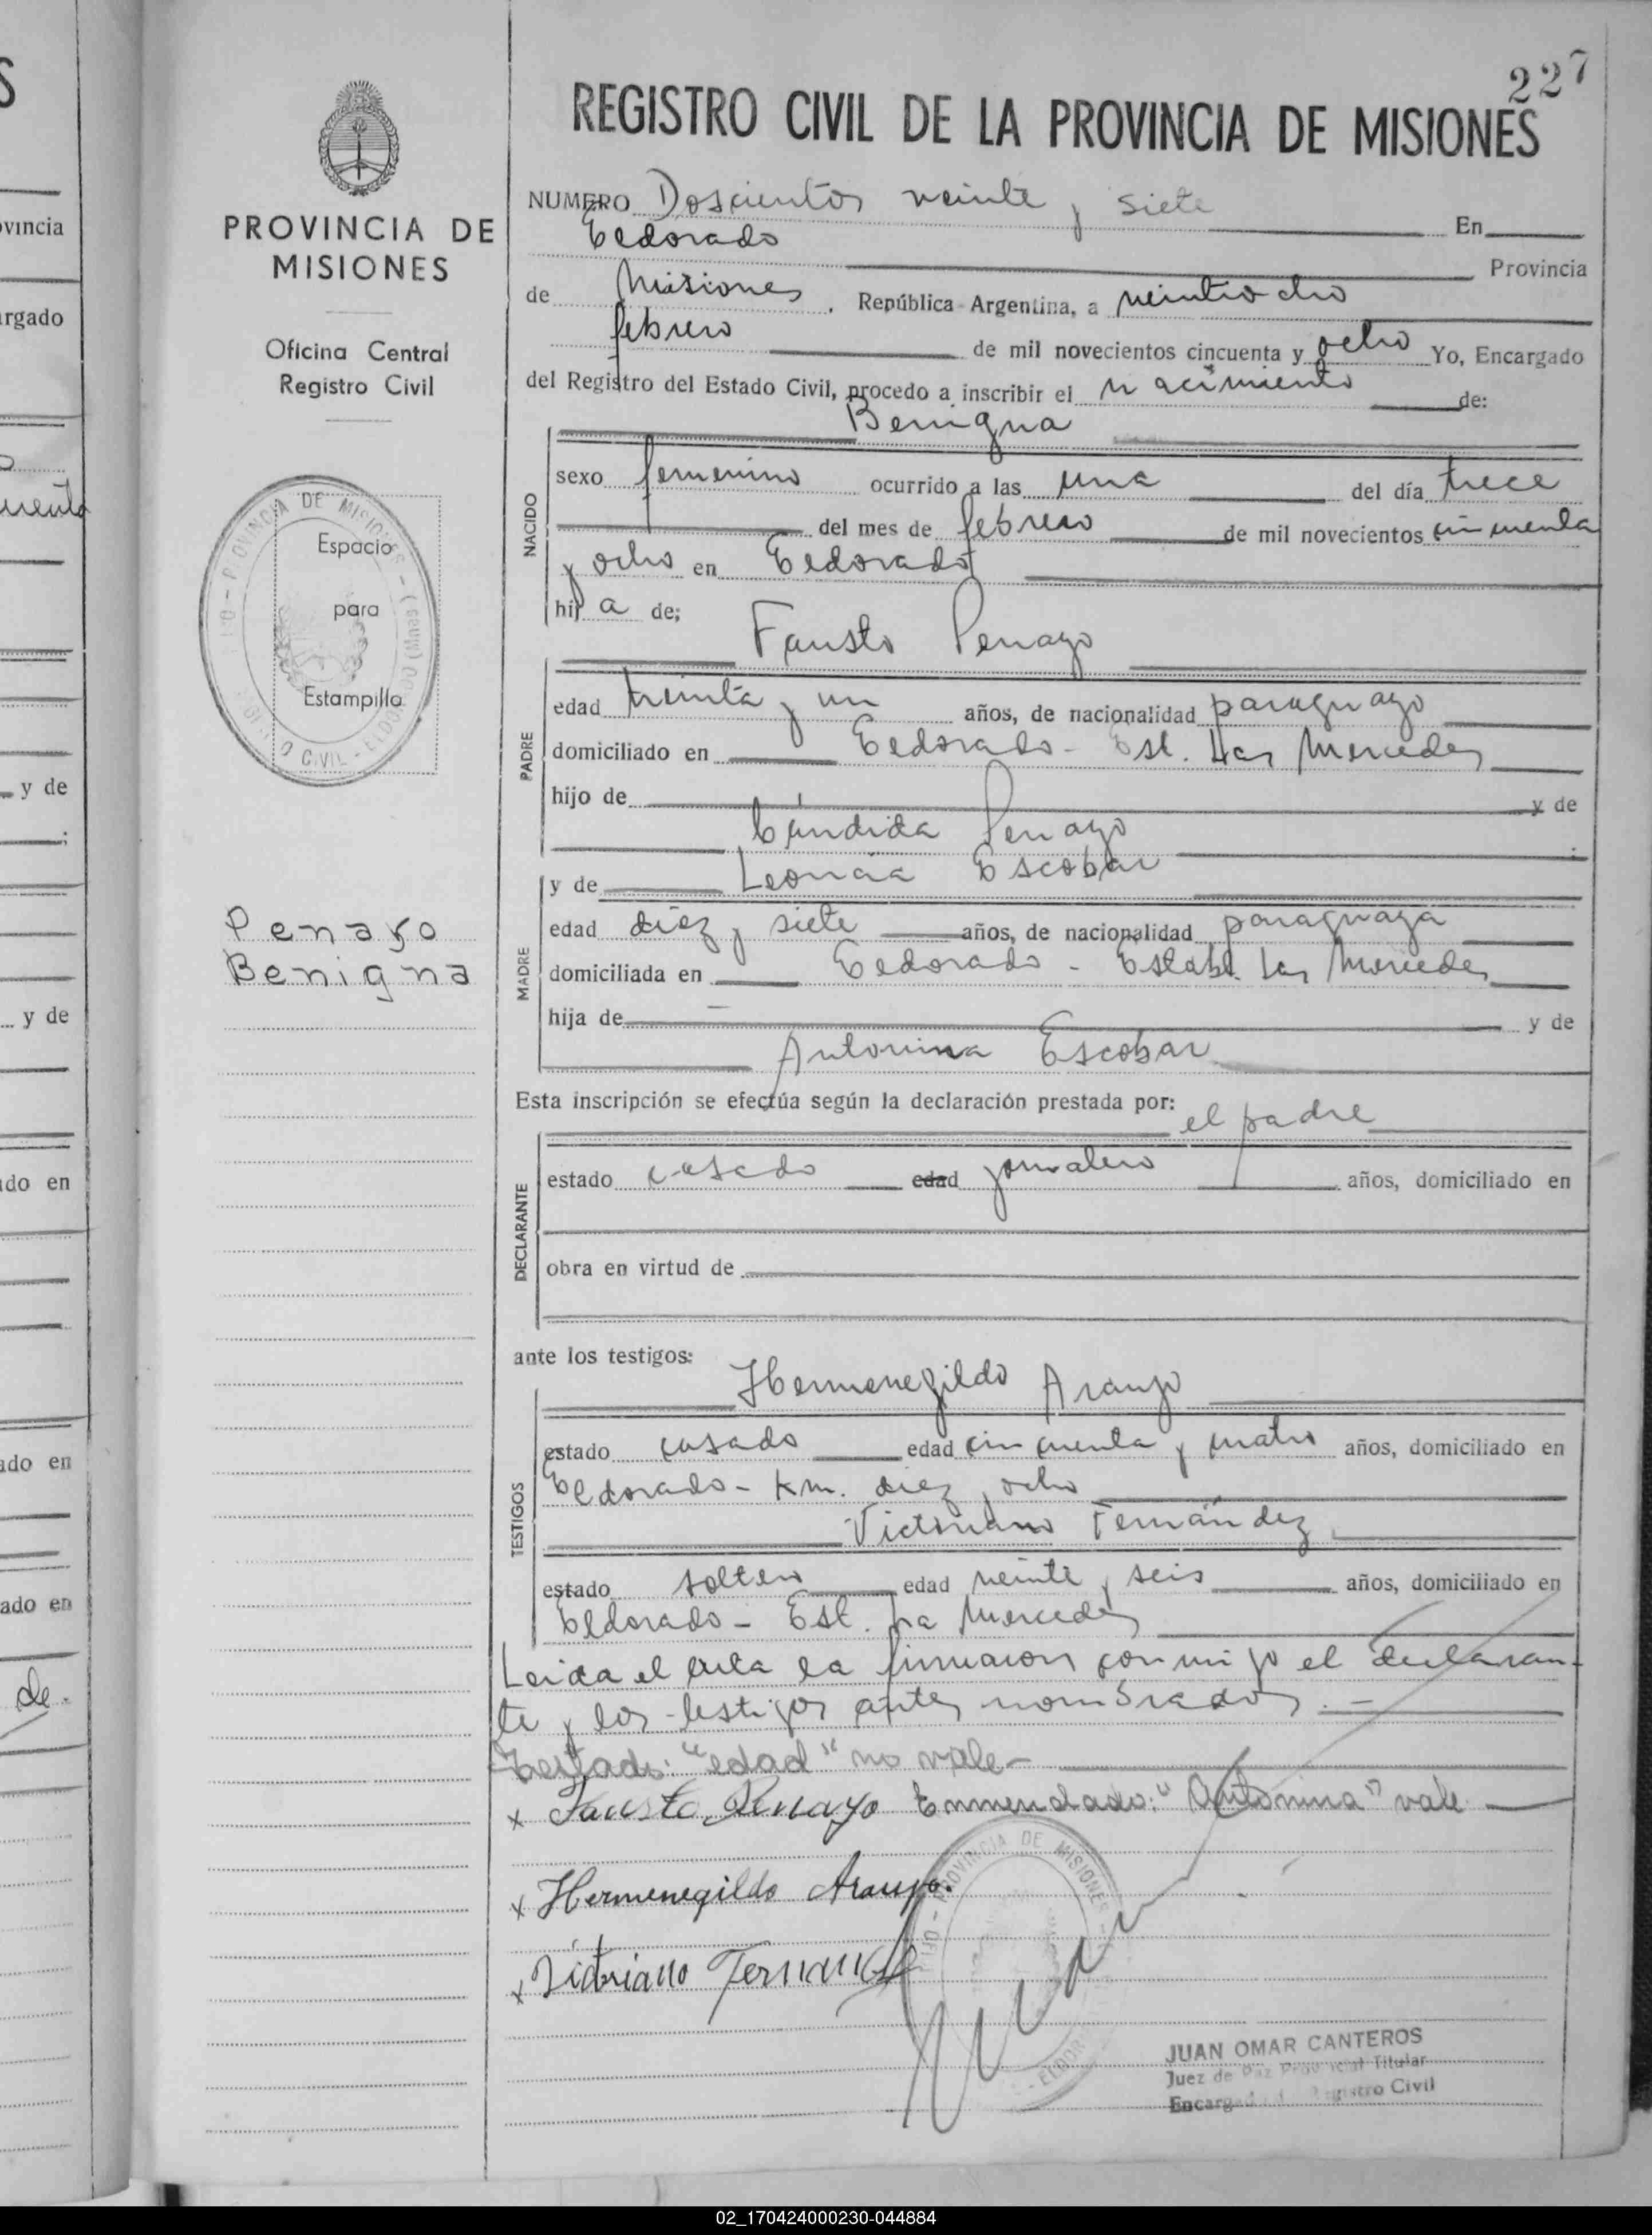 227
REGISTRO CIVIL DE LA PROVINCIA DE MISIONES
PROVINCIA DE
MISIONES
Oficina Central
Registro Civil
Espacio
para
Estampilla
Penayo
Benigna
NUMERO Doscientos veinte y siete En
Eldorado Provincia
de Misiones, República Argentina, a veintiocho
febrero de mil novecientos cincuenta y ocho Yo, Encargado
del Registro del Estado Civil, procedo a inscribir el nacimiento de:
Benigna
NACIDO
sexo femenino ocurrido a las una del día trece
del mes de febrero de mil novecientos cincuenta
y ocho en Eldorado
hija de;
Fausto Penayo
PADRE
edad treinta y un años, de nacionalidad paraguayo
domiciliado en Eldorado - Est. Las Mercedes
hijo de y de
Cándida Penayo
y de Leoncia Escobar
MADRE
edad diez y siete años, de nacionalidad paraguaya
domiciliada en Eldorado - Establ. Las Mercedes
hija de y de
Antonina Escobar
Esta inscripción se efectúa según la declaración prestada por:
el padre
DECLARANTE
estado casado edad jornalero años, domiciliado en
obra en virtud de
ante los testigos:
Hermenegildo Araujo
TESTIGOS
estado casado edad cincuenta y cuatro años, domiciliado en
Eldorado - Km. diez y ocho
Victoriano Fernández
estado soltero edad veinte y seis años, domiciliado en
Eldorado - Est. La Mercedes
Leida el acta la firmaron conmigo el declaran-
te y los testigos antes nombrados. -
Testado: "edad" no vale -
x Fausto Penayo Enmendado: "Antonina" vale
x Hermenegildo Araujo.
x Victoriano Fernandez
JUAN OMAR CANTEROS
Juez de Paz Provincial Titular
Encargado de Registro Civil
y de
y de
ado en
ado en
ado en
de.
02_170424000230-044884